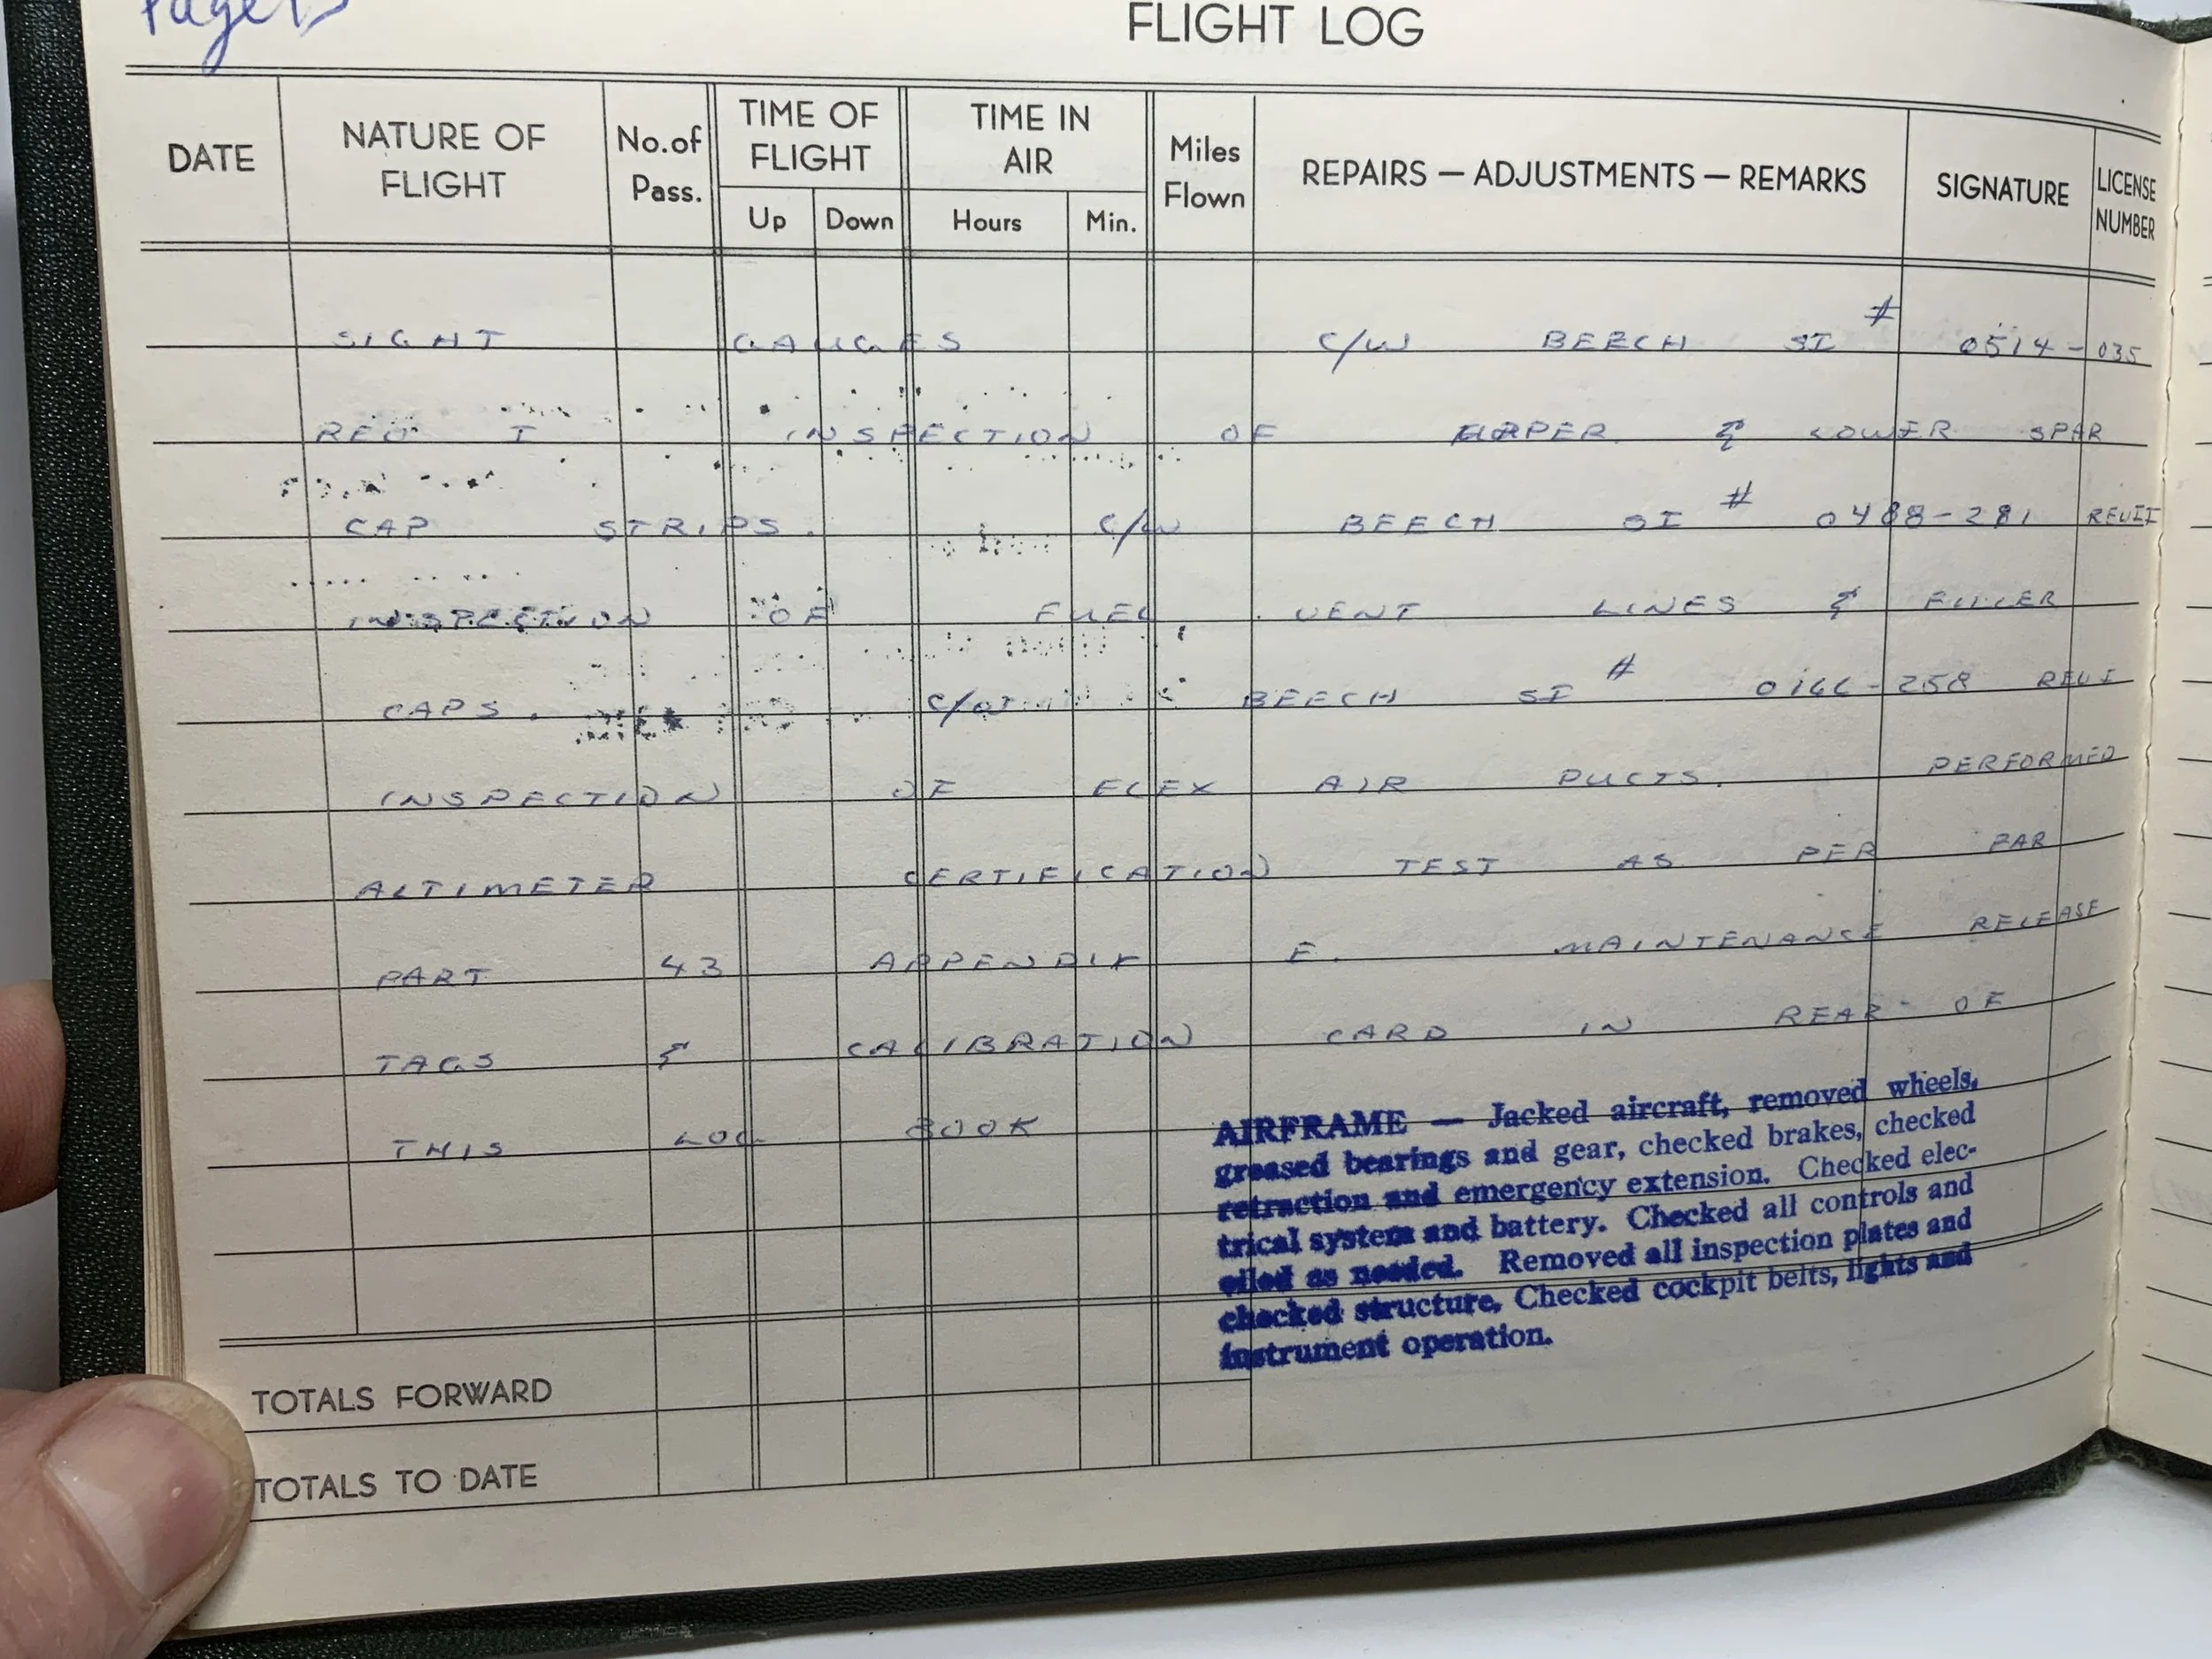 FLIGHT LOG
DATE NATURE OF FLIGHT No. of Pass. TIME OF FLIGHT Up Down TIME IN AIR Hours Min. Miles Flown REPAIRS — ADJUSTMENTS — REMARKS SIGNATURE LICENSE NUMBER
SIGHT GAUGES C/W BEECH SI # 0514-035
I INSPECTION OF UPPER & LOWER SPAR
CAP STRIPS. C/W BEECH SI # 0488-281 REVII
INSPECTION OF FUEL VENT LINES & FILLER
CAPS. C/W BEECH SI # 0166-258 REVI
INSPECTION OF FLEX AIR DUCTS. PERFORMED
ALTIMETER CERTIFICATION TEST AS PER FAR
PART 43 APPENDIX E. MAINTENANCE RELEASE
TAGS & CALIBRATION CARD IN REAR OF
THIS LOG BOOK
AIRFRAME — Jacked aircraft, removed wheels,
greased bearings and gear, checked brakes, checked
retraction and emergency extension. Checked elec-
trical system and battery. Checked all controls and
oiled as needed. Removed all inspection plates and
checked structure. Checked cockpit belts, lights and
instrument operation.
TOTALS FORWARD
TOTALS TO DATE